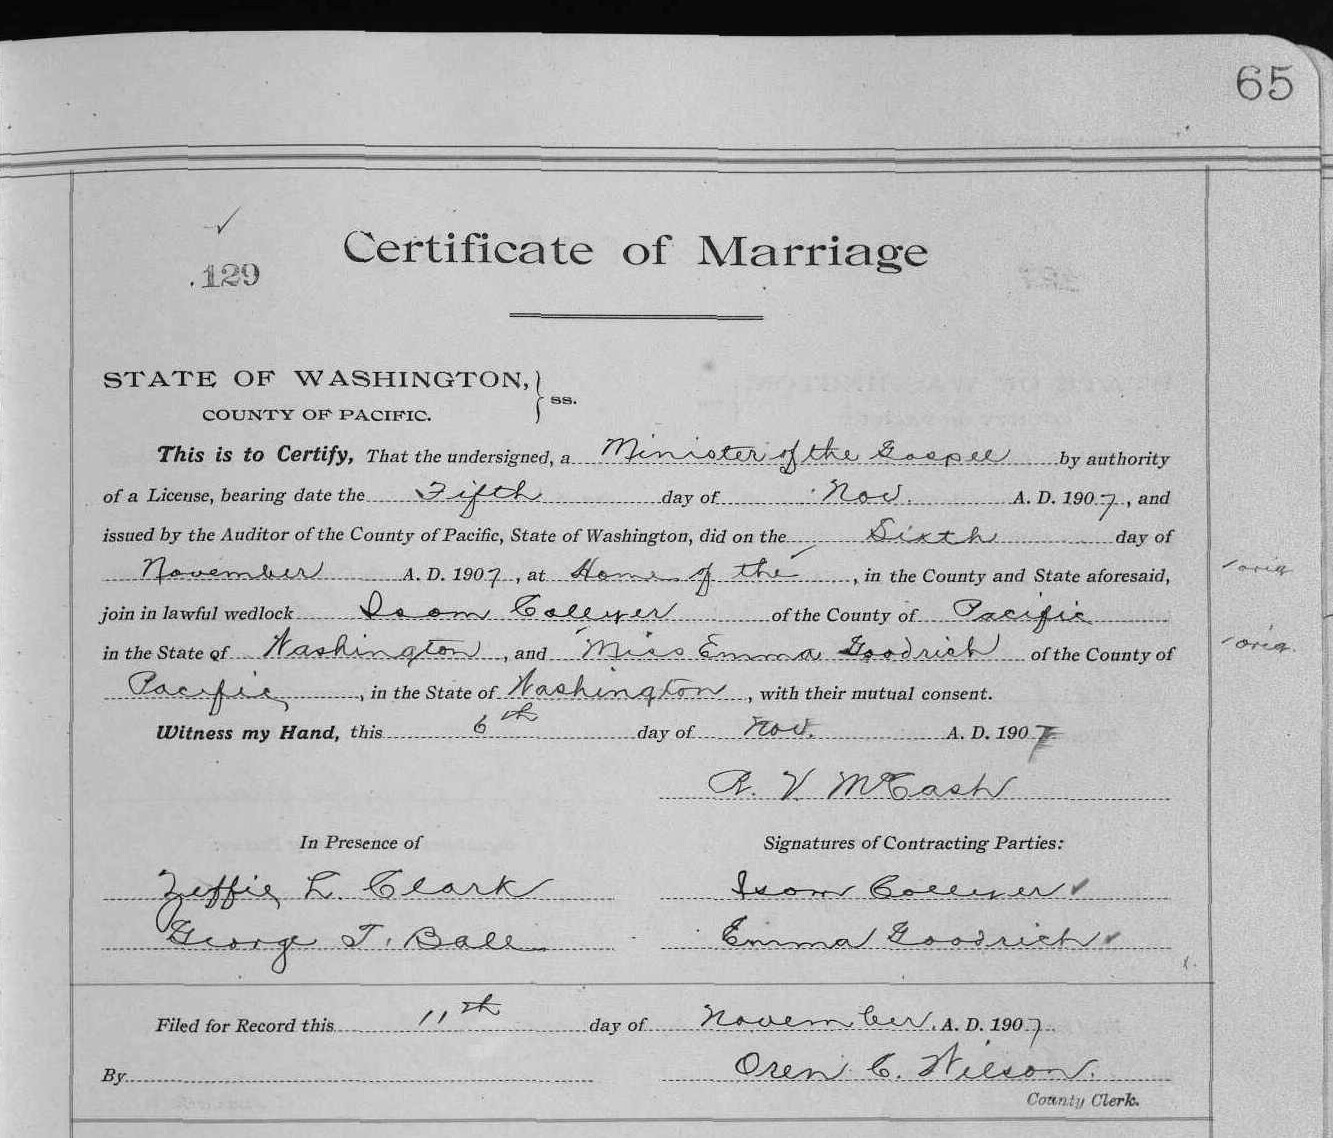 65
✓
.129
Certificate of Marriage
STATE OF WASHINGTON,
COUNTY OF PACIFIC. } ss.
This is to Certify, That the undersigned, a Minister of the Gospel by authority
of a License, bearing date the Fifth day of Nov. A. D. 1907, and
issued by the Auditor of the County of Pacific, State of Washington, did on the Sixth day of
November A. D. 1907, at Home of the, in the County and State aforesaid,
orig
join in lawful wedlock Isom Collyer of the County of Pacific
in the State of Washington, and Miss Emma Goodrich of the County of
orig.
Pacific, in the State of Washington, with their mutual consent.
Witness my Hand, this 6th day of Nov. A. D. 1907
R. V. McCash
In Presence of
Signatures of Contracting Parties:
Zeffie L. Clark
Isom Collyer ✓
George T. Ball
Emma Goodrich ✓
Filed for Record this 11th day of November. A. D. 1907.
By
Oren C. Wilson.
County Clerk.